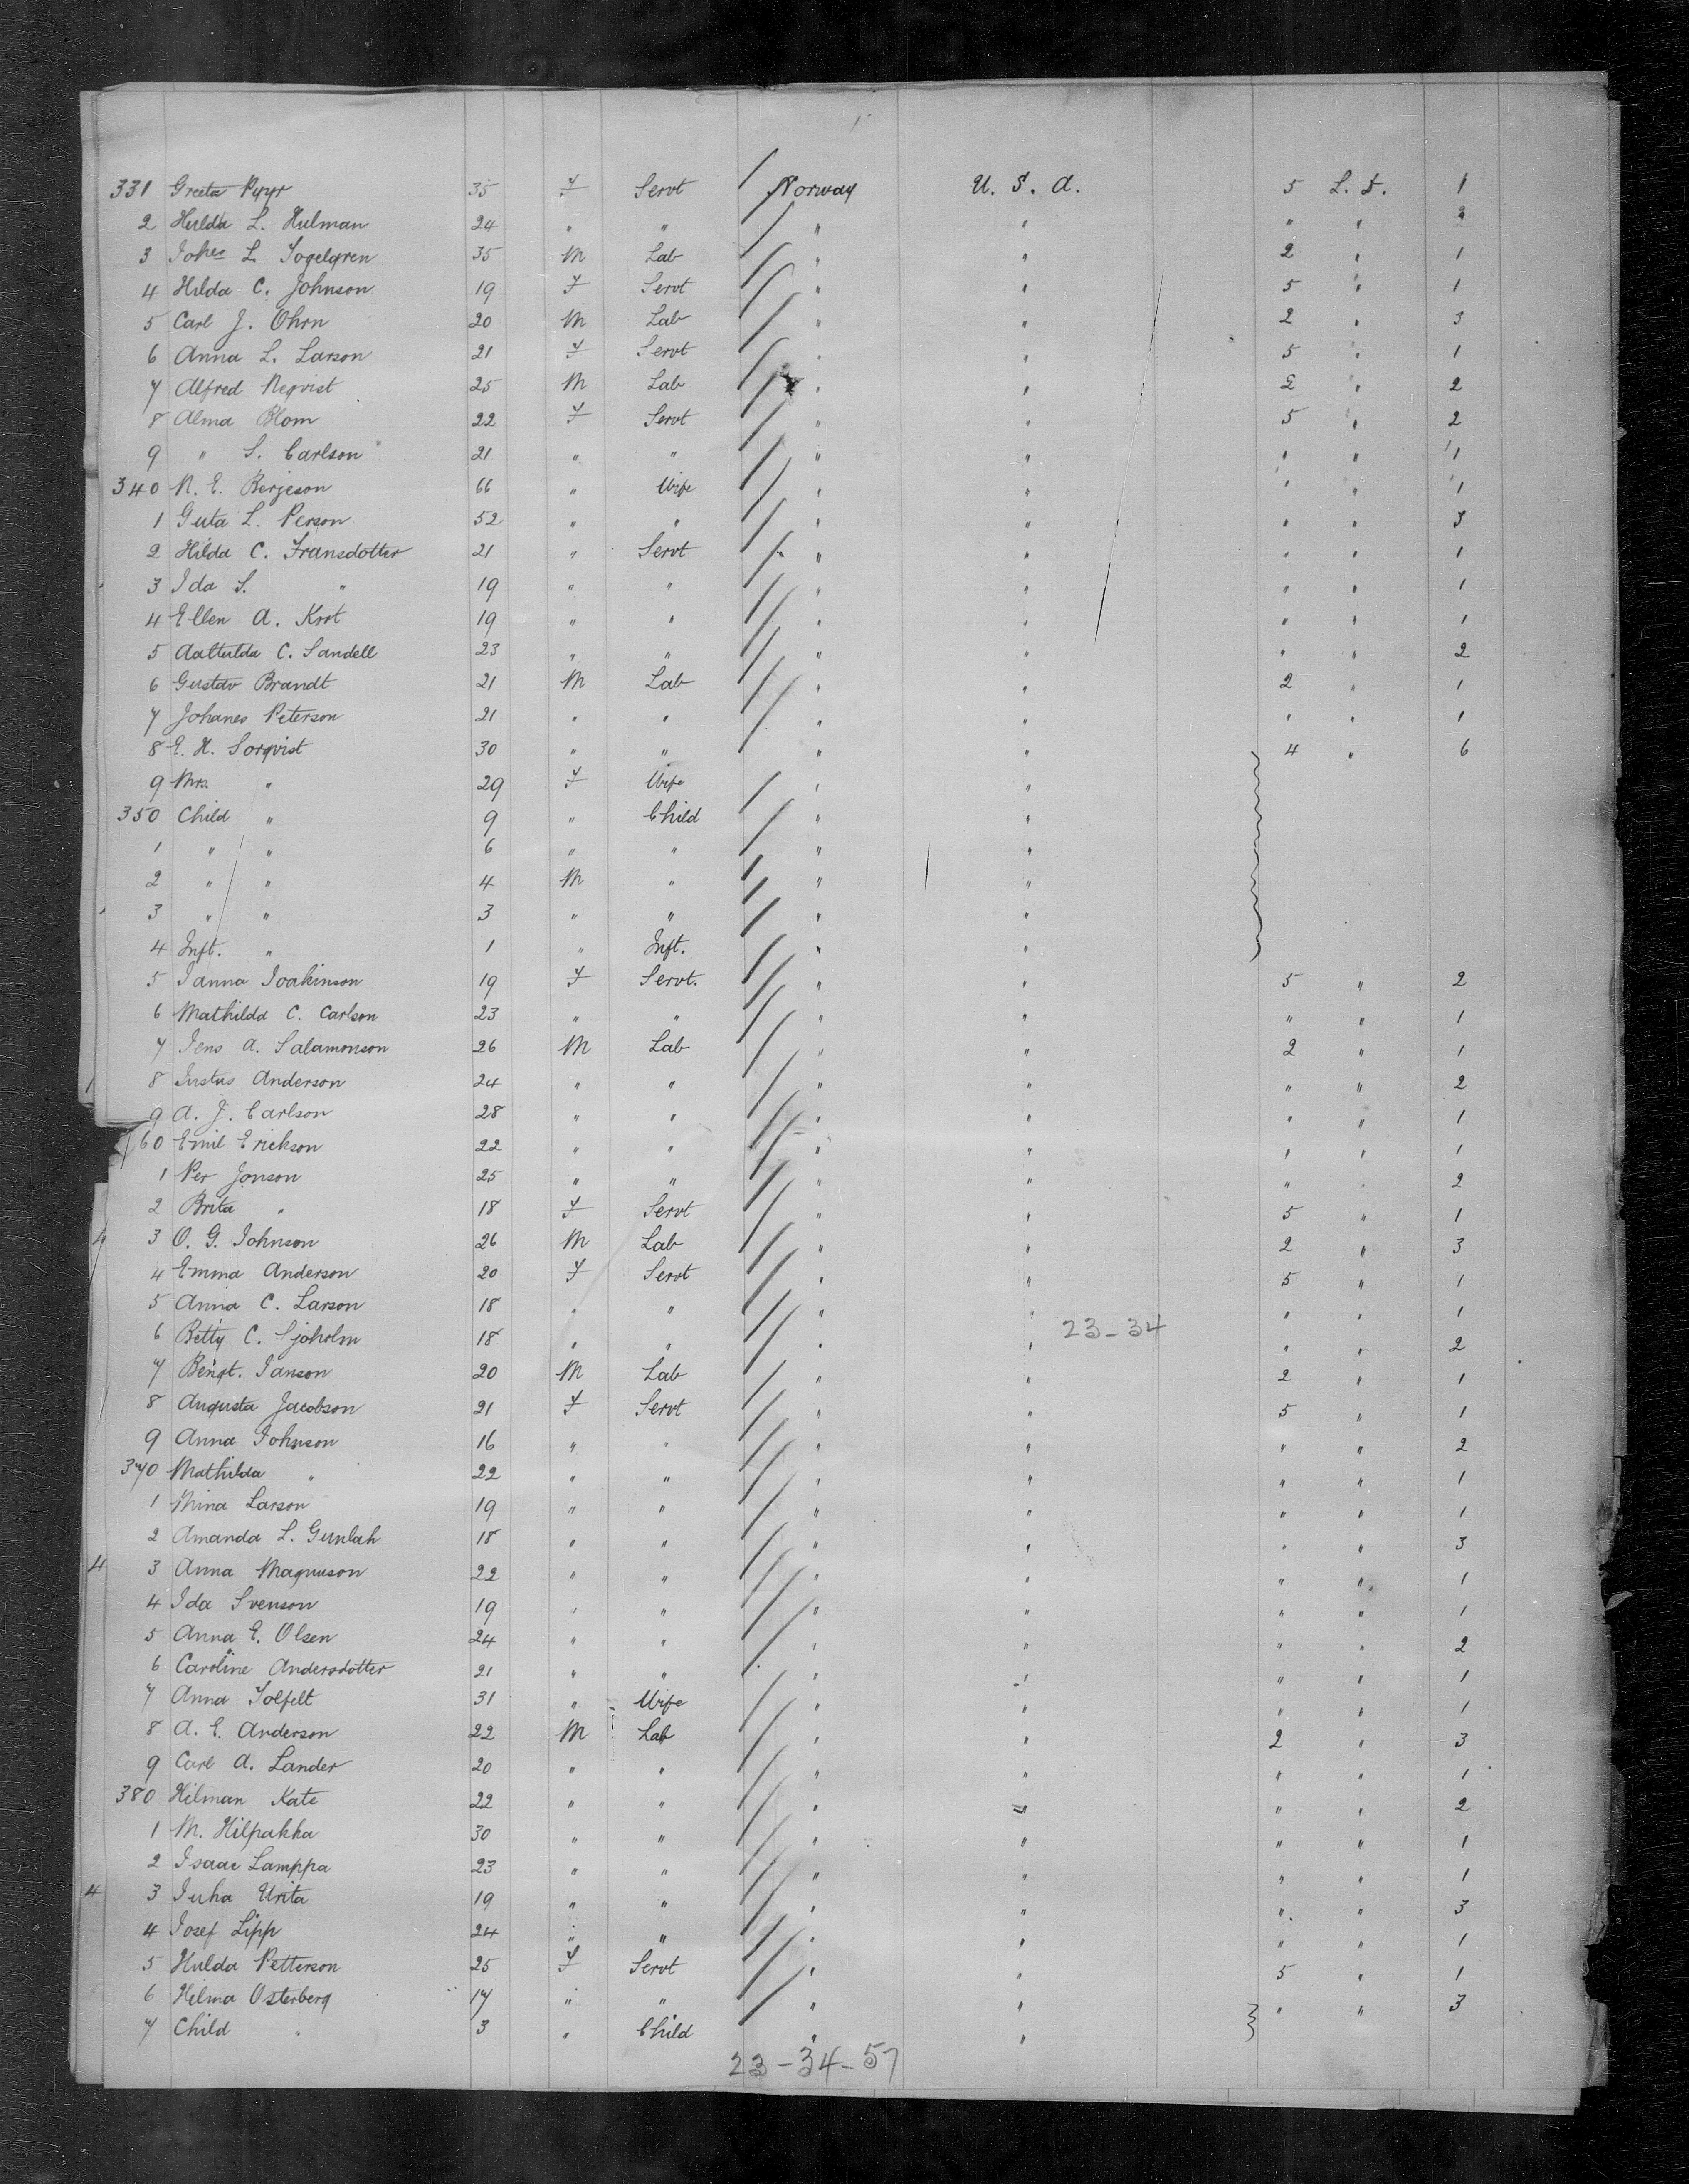 331 Greta Pyyr 35 F Servt Norway U. S. A. 5 L. S. 1
2 Hulda L. Hulman 24 " " " " " " 2
3 Johes L. Fogelgren 35 M Lab " " 2 " 1
4 Hilda C. Johnson 19 F Servt " " 5 " 1
5 Carl J. Ohrn 20 M Lab " " 2 " 3
6 Anna L. Larson 21 F Servt " " 5 " 1
7 Alfred Neqvist 25 M Lab " " 2 " 2
8 Alma Blom 22 F Servt " " 5 " 2
9 " S. Carlson 21 " " " " " " 1
340 N. E. Berjeson 66 " Wife " " " " 1
1 Guta L. Person 52 " " " " " " 3
2 Hilda C. Fransdotter 21 " Servt " " " " 1
3 Ida S. " 19 " " " " " " 1
4 Ellen A. Krot 19 " " " " " " 1
5 Aaltulda C. Sandell 23 " " " " " " 2
6 Gustav Brandt 21 M Lab " " 2 " 1
7 Johanes Peterson 21 " " " " " " 1
8 E. H. Sorqvist 30 " " " " 4 " 6
9 Mrs. " 29 F Wife " "
350 Child " 9 " Child " "
1 " " 6 " " " "
2 " " 4 M " " "
3 " " 3 " " " "
4 Inft. " 1 " Inft. " "
5 Janna Joakinson 19 F Servt. " " 5 " 2
6 Mathilda C. Carlson 23 " " " " " " 1
7 Jens A. Salamonson 26 M Lab " " 2 " 1
8 Justus Anderson 24 " " " " " " 2
9 A. J. Carlson 28 " " " " " " 1
60 Emil Erickson 22 " " " " " " 1
1 Per Jonson 25 " " " " " " 2
2 Brita " 18 F Servt " " 5 " 1
4 3 O. G. Johnson 26 M Lab " " 2 " 3
4 Emma Anderson 20 F Servt " " 5 " 1
5 Anna C. Larson 18 " " " " " " 1
23-34
6 Betty C. Sjoholm 18 " " " " " " 2
7 Bengt. Janson 20 M Lab " " 2 " 1
8 Augusta Jacobson 21 F Servt " " 5 " 1
9 Anna Johnson 16 " " " " " " 2
370 Mathilda " 22 " " " " " " 1
1 Mina Larson 19 " " " " " " 1
2 Amanda L. Gunlah 18 " " " " " " 3
4 3 Anna Magnuson 22 " " " " " " 1
4 Ida Svenson 19 " " " " " " 1
5 Anna E. Olsen 24 " " " " " " 2
6 Caroline Andersdotter 21 " " " " " " 1
7 Anna Solfelt 31 " Wife " " " " 1
8 A. E. Anderson 22 M Lab " " 2 " 3
9 Carl A. Lander 20 " " " " " " 1
380 Hilman Kate 22 " " " " " " 2
1 M. Hilpakka 30 " " " " " " 1
2 Isaac Lamppa 23 " " " " " " 1
4 3 Juha Urita 19 " " " " " " 3
4 Josef Lipp 24 " " " " " " 1
5 Hulda Petterson 25 F Servt " " 5 " 1
6 Hilma Osterberg 17 " " " " " " 3
7 Child " 3 " Child " "
23-34-57